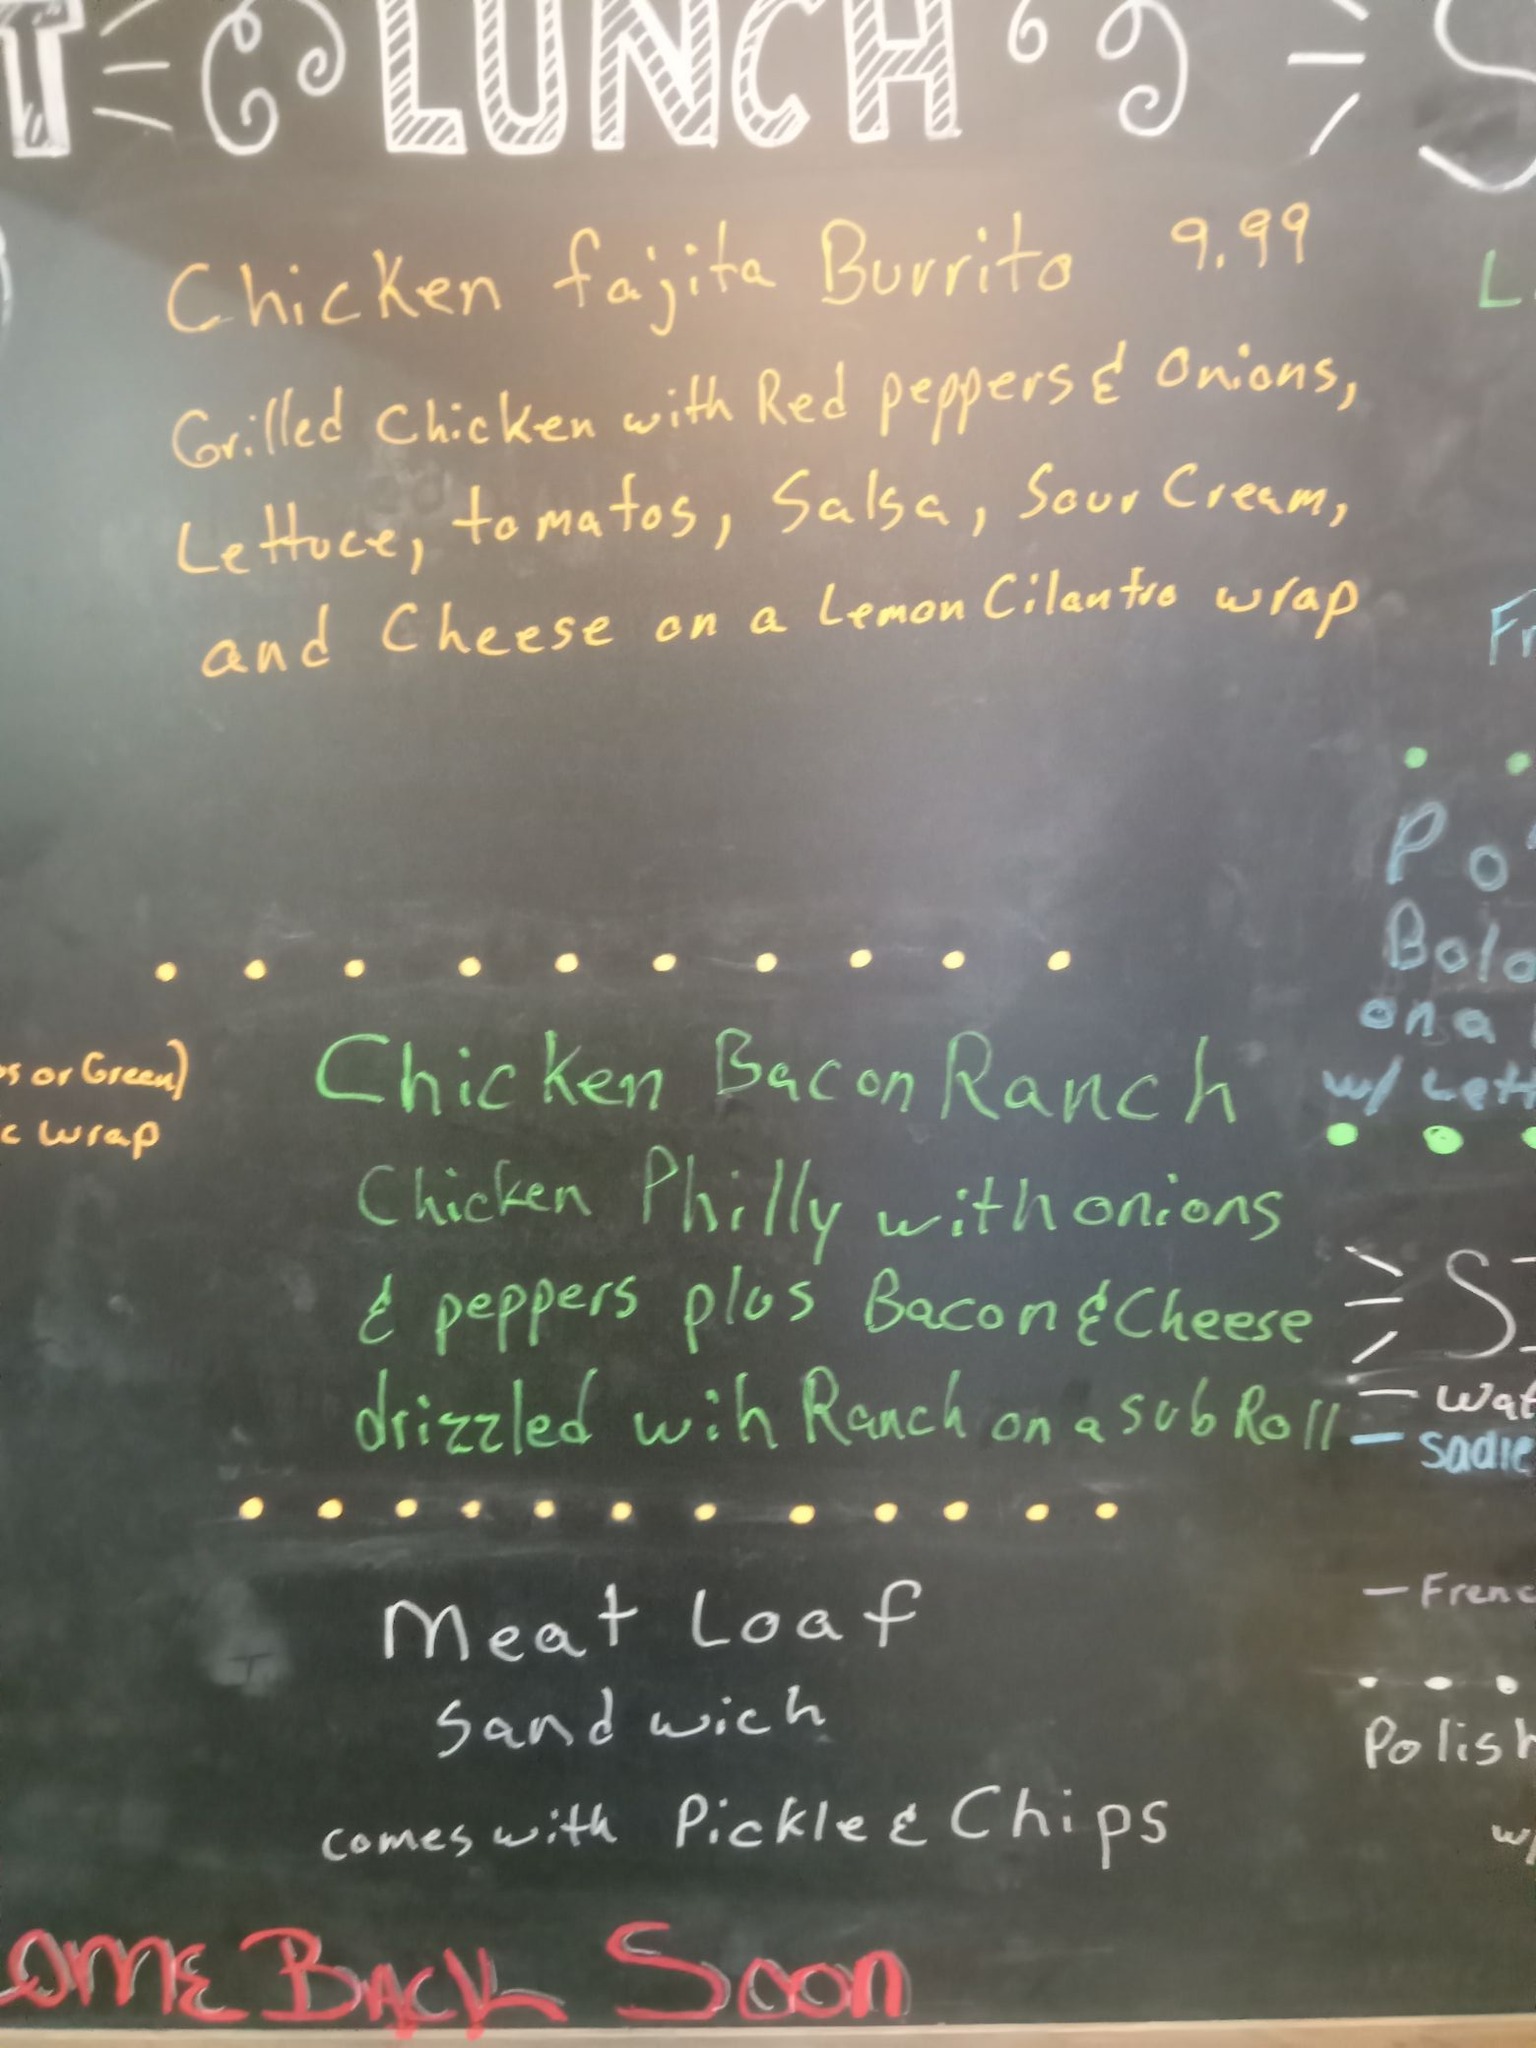 LUNCH
Chicken fajita Burrito 9.99
Grilled Chicken with Red peppers & Onions,
Lettuce, tomatos, Salsa, Sour Cream,
and Cheese on a Lemon Cilantro wrap
or Green)
wrap
Chicken Bacon Ranch
Chicken Philly with onions
& peppers plus Bacon & Cheese
drizzled wih Ranch on a sub Roll
Meat Loaf
Sandwich
comes with Pickle & Chips
on a
w/
Polish
w/
Come Back Soon